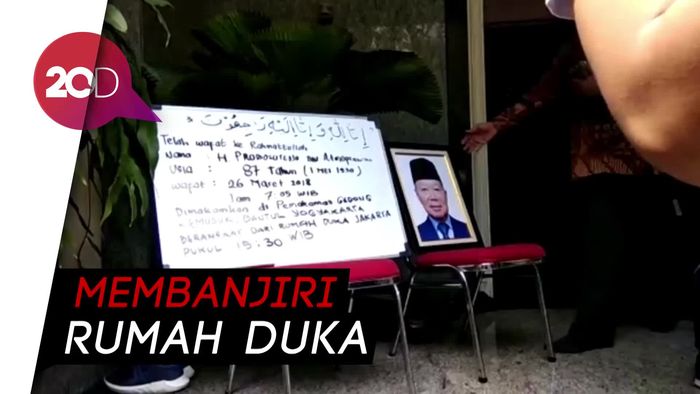 20D
إنا لله وإنا إليه راجعون
Telah wapat ke Rahmatullah
Nama : H PROBOSUTEDJO
Usia : 87 Tahun (1 MEI 1930)
wapat : 26 Maret 2018
Jam 7.05 WIB
Dimakamkan di Pemakaman
KEMUSUK, BANTUL YOGYAKARTA
BERANGKAT DARI RUMAH DUKA JAKARTA
PUKUL 15:30 WIB
MEMBANJIRI
RUMAH DUKA